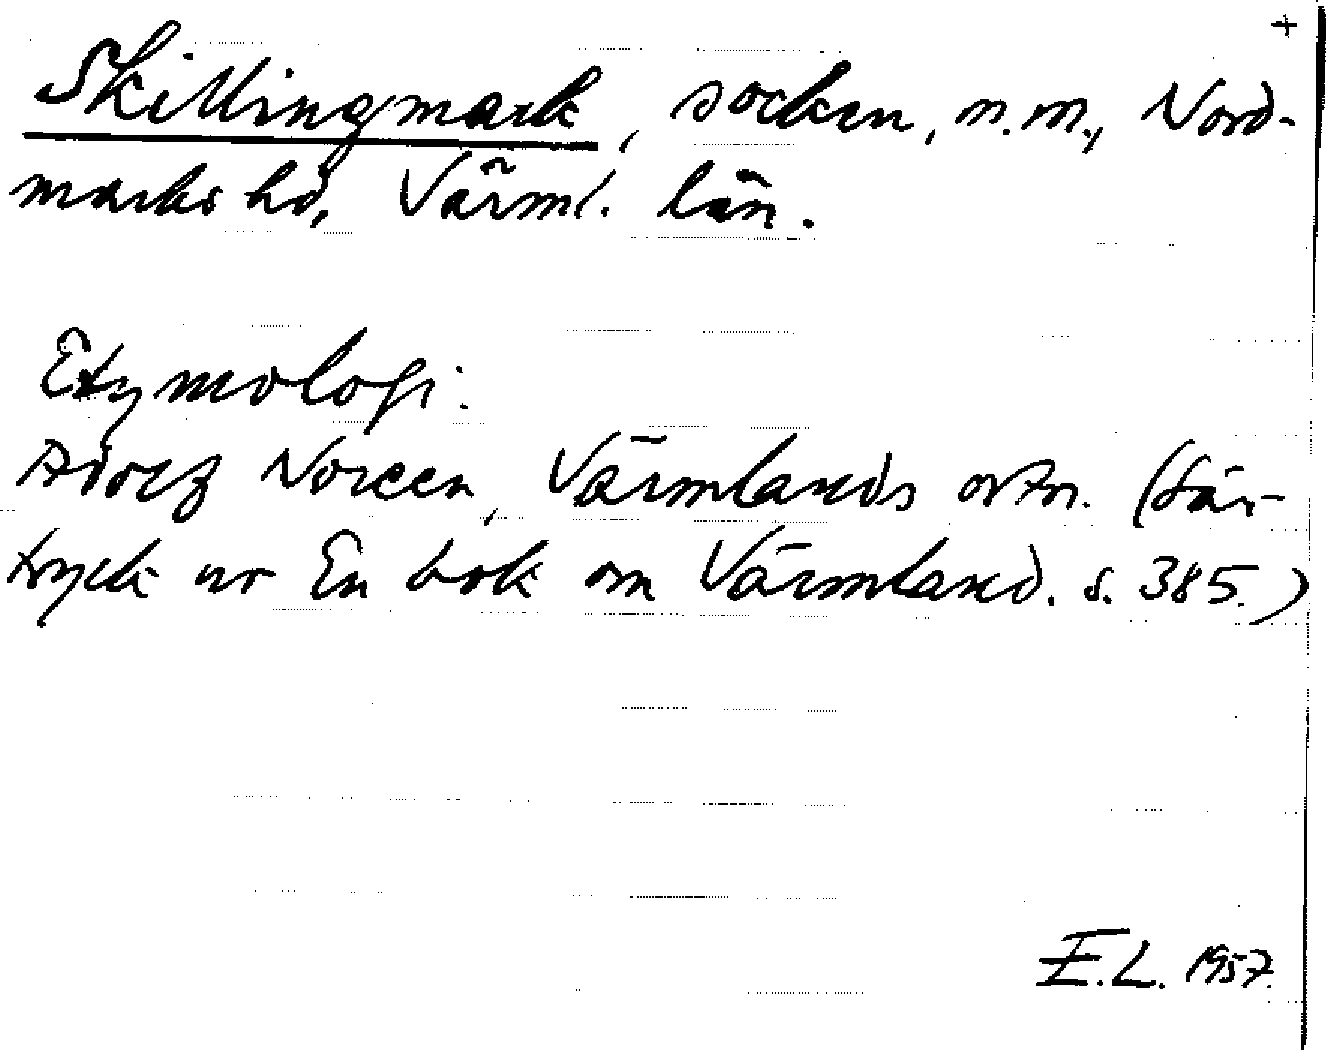 +
Skillingmark, socken, n.m., Nord-
marks hd, Värml. län.
Etymologi.
Adolf Noreen, Värmlands ortn. (Sär-
tryck ur En bok om Värmland. s. 385.)
E.L. 1957.